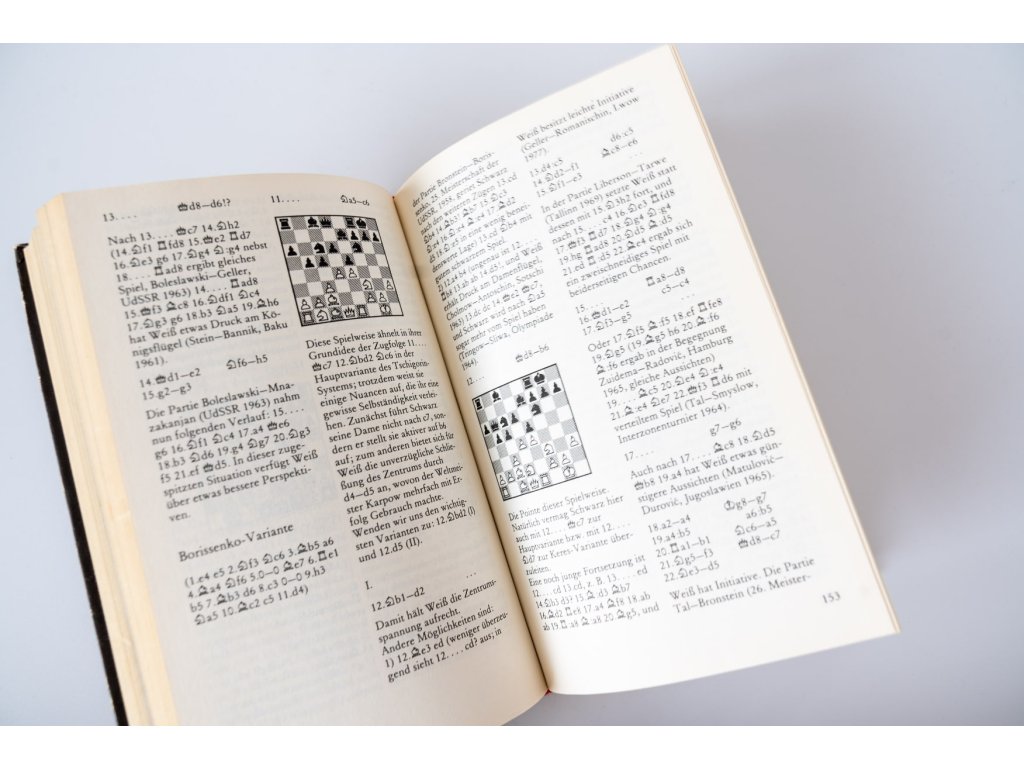 13. . . . ♕d8–d6!?
Nach 13. . . . ♕c7 14.♘h2
(14.♘f1 ♖fd8 15.♕e2 ♖d7
16.♘e3 g6 17.♘g4 ♘:g4 nebst
18. . . . ♖ad8 ergibt gleiches
Spiel, Boleslawski–Geller,
UdSSR 1963) 14. . . . ♖ad8
15.♕f3 ♗c8 16.♘df1 ♘c4
17.♘g3 g6 18.b3 ♘a5 19.♗h6
hat Weiß etwas Druck am Kö-
nigsflügel (Stein–Bannik, Baku
1961).
14.♕d1–e2 ♘f6–h5
15.g2–g3
Die Partie Boleslawski–Mna-
zakanjan (UdSSR 1963) nahm
nun folgenden Verlauf: 15. . . .
g6 16.♘f1 ♘c4 17.a4 ♕e6
18.b3 ♘d6 19.g4 ♘g7 20.♘g3
f5 21.ef ♕d5. In dieser zuge-
spitzten Situation verfügt Weiß
über etwas bessere Perspekti-
ven.
Borissenko-Variante
(1.e4 e5 2.♘f3 ♘c6 3.♗b5 a6
4.♗a4 ♘f6 5.0–0 ♗e7 6.♖e1
b5 7.♗b3 d6 8.c3 0–0 9.h3
♘a5 10.♗c2 c5 11.d4)
11. . . . ♘a5–c6
Diese Spielweise ähnelt in ihrer
Grundidee der Zugfolge 11. . . .
♕c7 12.♘bd2 ♘c6 in der
Hauptvariante des Tschigorin-
Systems; trotzdem weist sie
einige Nuancen auf, die ihr eine
gewisse Selbständigkeit verlei-
hen. Zunächst führt Schwarz
seine Dame nicht nach c7, son-
dern er stellt sie aktiver auf b6
auf; zum anderen bietet sich für
Weiß die unverzügliche Schlie-
ßung des Zentrums durch
d4–d5 an, wovon der Weltmei-
ster Karpow mehrfach mit Er-
folg Gebrauch machte.
Wenden wir uns den wichtig-
sten Varianten zu: 12.♘bd2 (I)
und 12.d5 (II).
I.
12.♘b1–d2 . . .
Damit hält Weiß die Zentrums-
spannung aufrecht.
Andere Möglichkeiten sind:
1) 12.♗e3 ed (weniger überzeu-
gend sieht 12. . . . cd? aus; in
der Partie Bronstein–Boris-
senko, 25. Meisterschaft der
UdSSR, 1958, geriet Schwarz
nach den weiteren Zügen 13.cd
♘b4 14.♗b3! ♘:e4 15.♘c3
d5 18.♘e5 in eine wenig benei-
denswerte Lage) 13.cd ♘b4 mit
gutem schwarzem Spiel.
2) 12.a4 b4 (ungenau ist 12. . . .
erhält Druck am Damenflügel,
Cholmow–Antoschin, Sotschi
und Schwarz wird nach ♘a5
sogar mehr vom Spiel haben
(Tringow–Sliwa, Olympiade
1964).
12. . . . ♕d8–b6
Die Pointe dieser Spielweise.
Natürlich vermag Schwarz hier
auch mit 12. . . . ♕c7 zur
Hauptvariante bzw. mit 12. . . .
♘d7 zur Keres-Variante über-
zuleiten.
Eine noch junge Fortsetzung ist
12. . . . cd 13.cd, z. B. 13. . . . ed
14.♘b3 d3? 15.♗:d3 ♗b7
16.♗d2 ♖e8 17.a4 ♗f8 18.ab
ab 19.♖:a8 ♗:a8 20.♗g5, und
Weiß besitzt leichte Initiative
(Geller–Romanischin, Lwow
1977).
13.d4:c5 d6:c5
14.♘d2–f1 ♗c8–e6
15.♘f1–e3 . . .
In der Partie Liberson–Tarwe
(Tallinn 1969) setzte Weiß statt
dessen mit 15.♘3h2 fort, und
nach 15. . . . c4 16.♘e3 ♖fd8
17.♕f3 ♖d7 18.♘g4 ♘:g4
19.hg ♖ad8 22.♘d5 ♗:d5
21.ed ♖:d5 22.♗e4 ergab sich
ein zweischneidiges Spiel mit
beiderseitigen Chancen.
15. . . . ♖a8–d8
16.♕d1–e2 c5–c4
17.♘f3–g5 . . .
Oder 17.♘f5 ♗:f5 18.ef ♖fe8
19.♘g5 (19.♗g5 h6 20.♗:f6
♗:f6 ergab in der Begegnung
Zuidema–Radović, Hamburg
1965, gleiche Aussichten)
19. . . . ♗c5 20.♘e4 ♘:e4
21.♗:e4 ♘e7 22.♕f3 ♖d6 mit
verteiltem Spiel (Tal–Smyslow,
Interzonenturnier 1964).
17. . . . g7–g6
Auch nach 17. . . . ♗c8 18.♘d5
♕b8 19.a4 hat Weiß etwas gün-
stigere Aussichten (Matulović–
Durić, Jugoslawien 1965).
18.a2–a4 ♔g8–g7
19.a4:b5 a6:b5
20.♖a1–b1 ♘c6–a5
21.♘g5–f3 ♕d8–c7
22.♘e3–d5
Weiß hat Initiative. Die Partie
Tal–Bronstein (26. Meister-
153